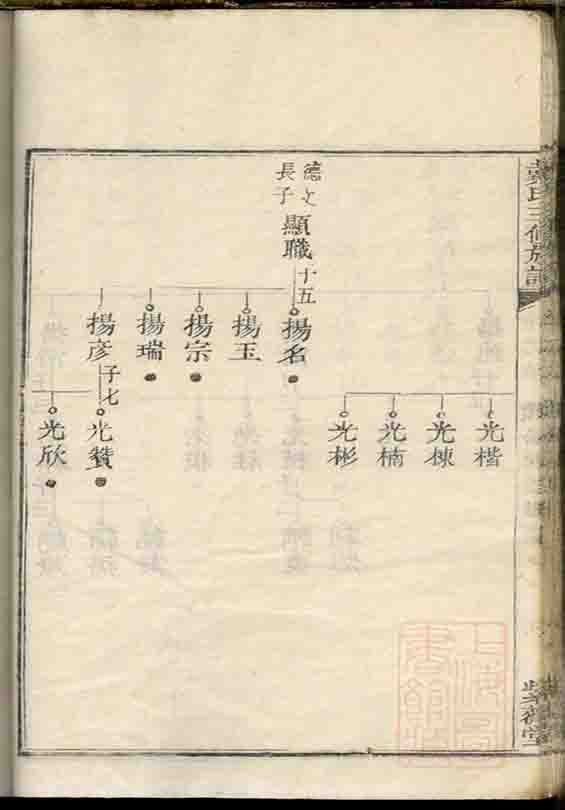 氏三修族譜
光楷
光棟
光楠
光彬
德文
長子
顯職
十五
揚名
揚玉
揚宗
揚瑞
揚彥
子七
光贊
光欣
上海圖
書館藏